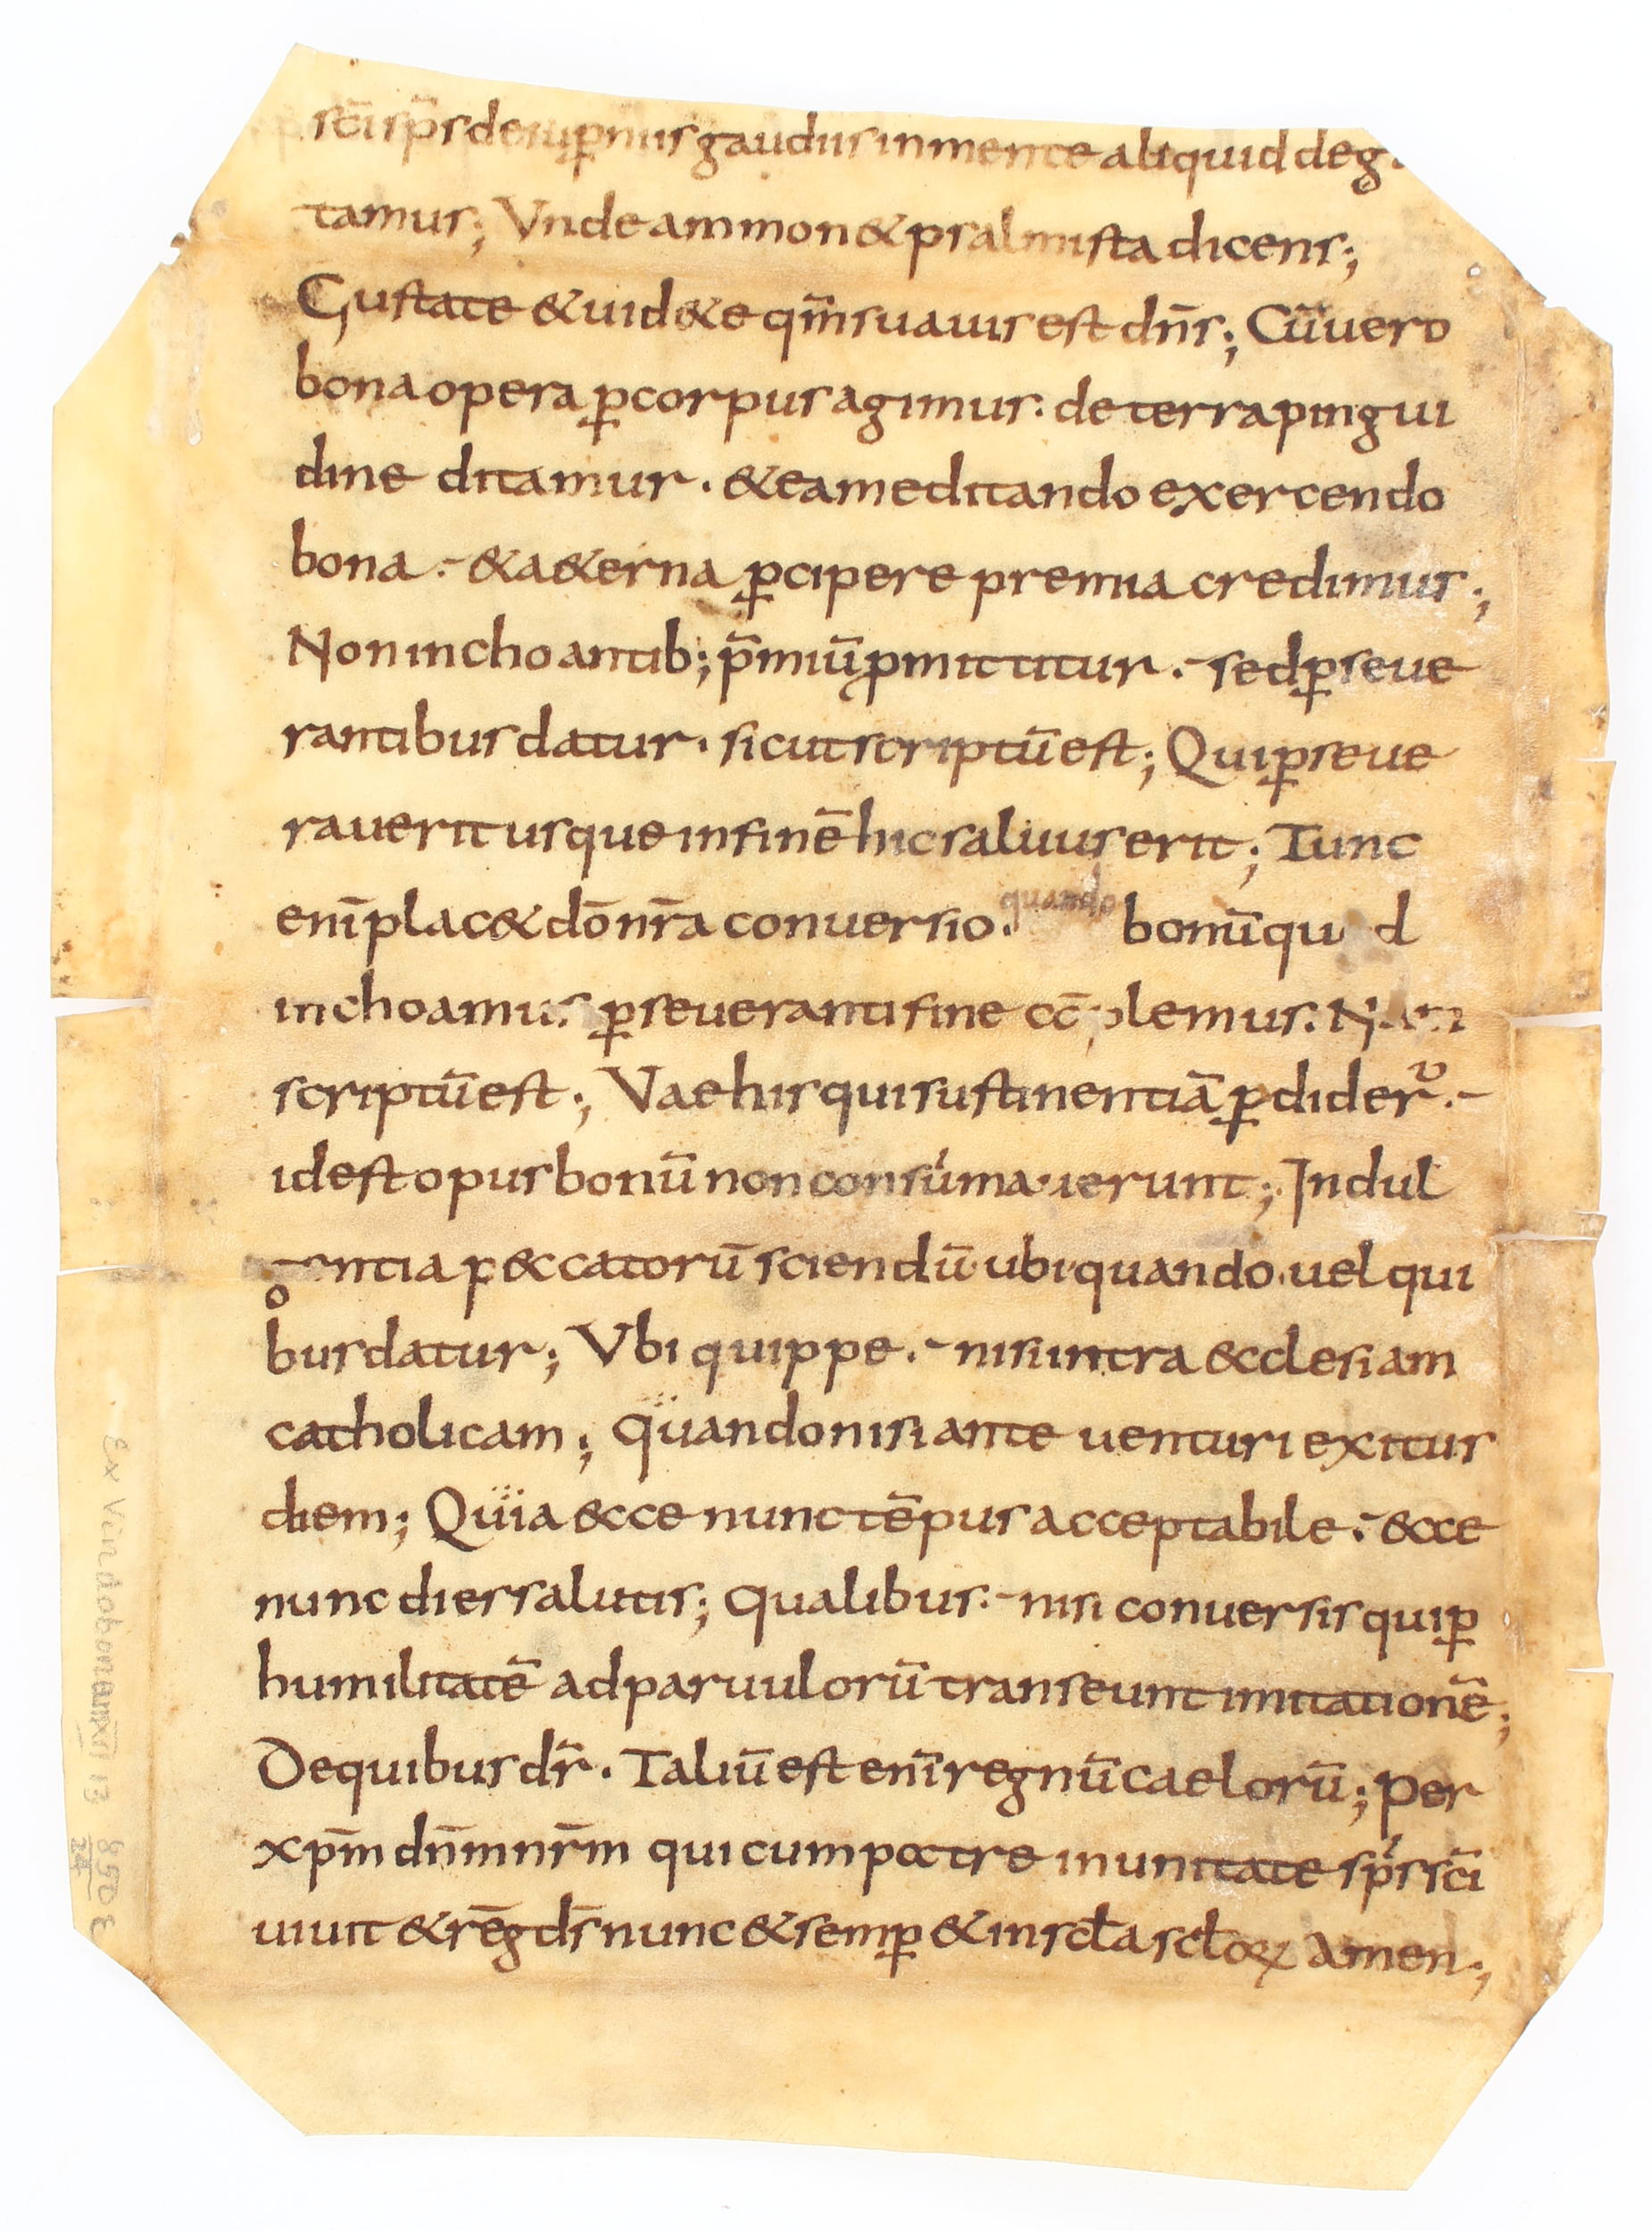 scī sp̄s desup̄nis gaudiis in mente aliquid deg
tamur; Vnde ammon & psalmista dicens;
Gustate & uid&e qm̄ suauis est dn̄s; Cū uero
bona opera ꝑ corpus agimus. de terra pingui
dine ditamur. & ea meditando exercendo
bona. & a&erna ꝑcipere premia credimus;
Non inchoantib; p̄miū ꝓmittitur. sed ꝑseue
rantibus datur. sicut scriptū est; Qui ꝑseue
rauerit usque in finē hic saluus erit; Tunc
enī plac& dō nr̄a conuersio. quando bonū quod
inchoamus ꝑseueranti fine cō plemus. Nam
scriptū est; Vae his qui sustinentiā ꝑdider̄.
id est opus bonū non consūmauerunt; Indul
gentia p&catorū sciendū ubi quando uel qui
bus datur; Vbi quippe. nisi intra &clesiam
catholicam; Quando nisi ante uenturi exitus
diem; Quia &ce nunc tēpus acceptabile. &cce
nunc dies salutis; Qualibus. nisi conuersis qui ꝑ
humilitatē ad paruulorū transeunt imitationē;
De quibus dr̄. Taliū est enī regnū caelorū; Per
xp̄m dn̄m nr̄m qui cum patre in unitate sp̄s scī
uiuit & rēg ds̄ nunc & semꝑ & in scła scłoꝝ Amen;
Ex Vindobonensi 13
8598
24